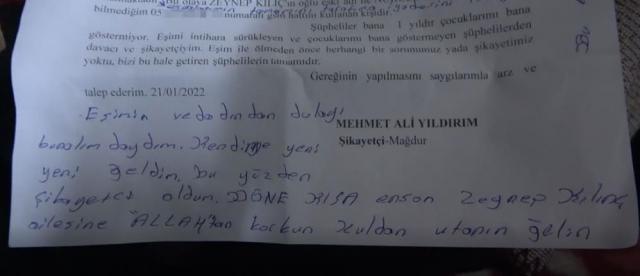 Bu olaya ZEYNEP KILIÇ'ın oğlu eski
bilmediğim 05 numaralı hattını kullanan kişidir.
Şüpheliler bana 1 yıldır çocuklarımı bana
göstermiyor. Eşimi intihara sürükleyen ve çocuklarımı bana göstermeyen şüphelilerden
davacı ve şikayetçiyim. Eşim ile ölmeden önce herhangi bir sorunumuz yada şikayetimiz
yoktu, bizi bu hale getiren şüphelilerin tamamıdır.
Gereğinin yapılmasını saygılarımla arz ve
talep ederim. 21/01/2022
Eşimin vedadından dulayı
MEHMET ALİ YILDIRIM
bunalım daydım. Kendime yeni
Şikayetçi-Mağdur
yeni geldim, bu yüzden
şikayetci oldum. DÖNE KISA enson Zeynep Kılınç
ailesine ALLAH'tan korkun kuldan utanın gelin